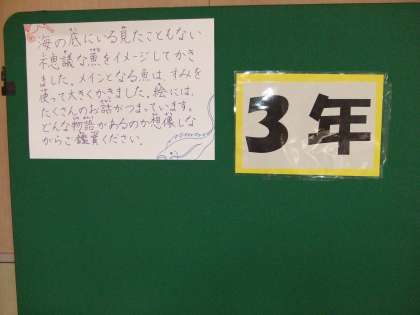 海の底にいる見たこともない
不思議な魚をイメージしてかき
ました。メインとなる魚は、すみを
使って大きくかきました。絵には、
たくさんのお話がつまっています。
どんな物語があるのか想像しな
がらご鑑賞ください。
3年